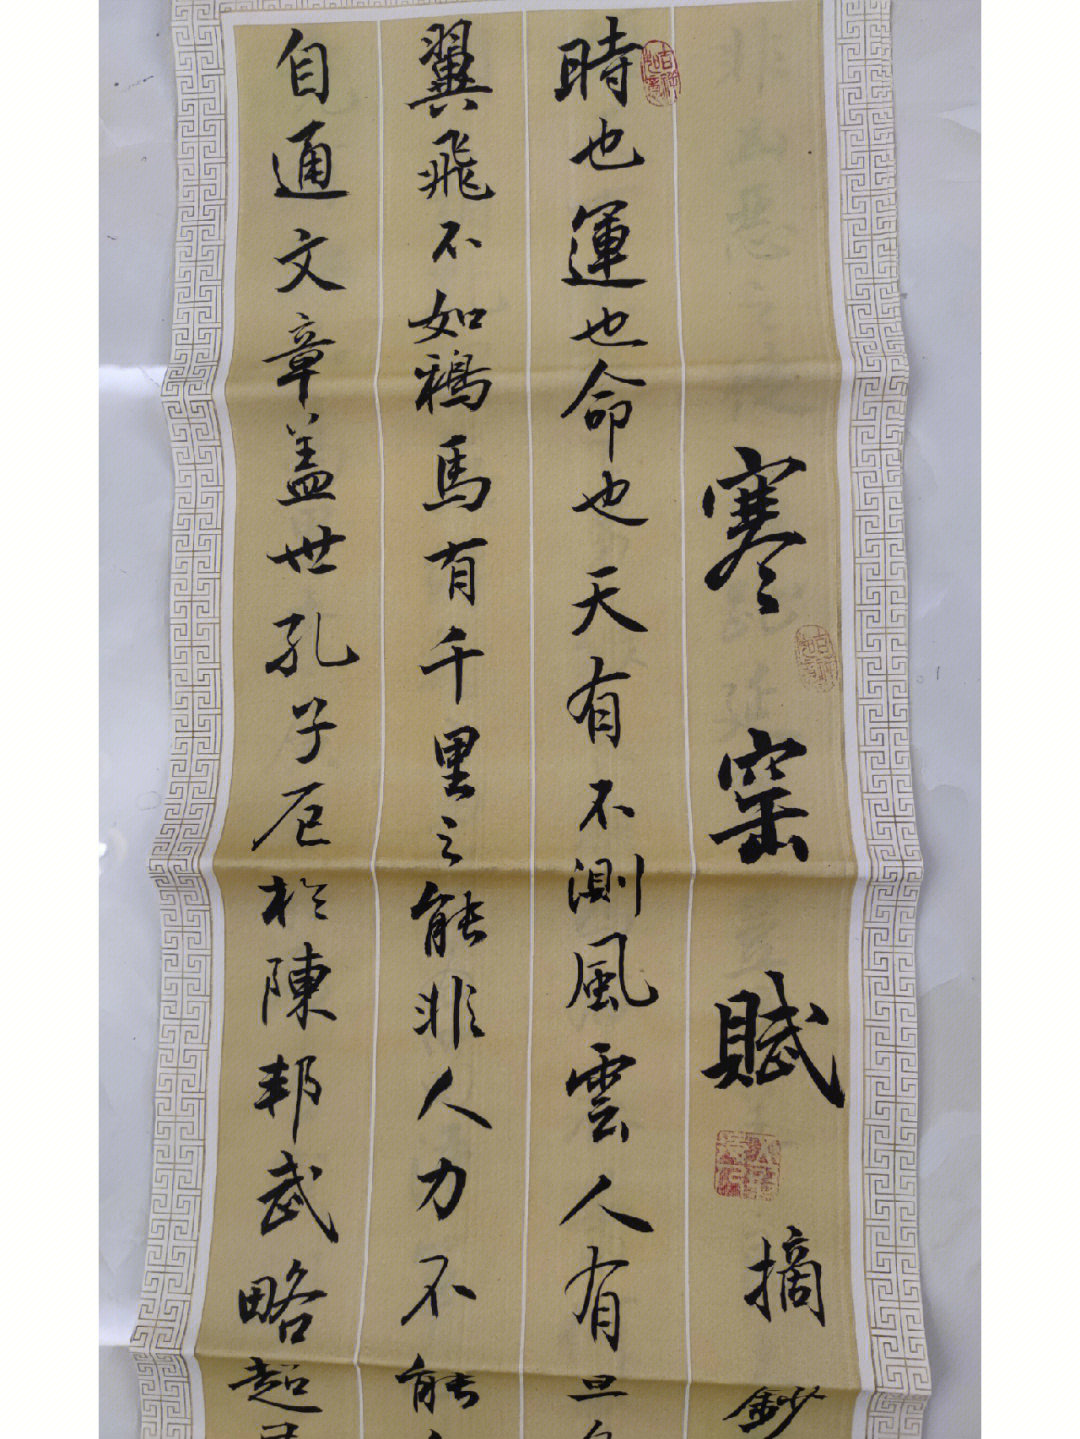 寒窑賦摘鈔
時也運也命也天有不測風雲人有旦
翼飛不如鴉馬有千里之能非人力不能
自通文章盖世孔子厄於陳邦武略超